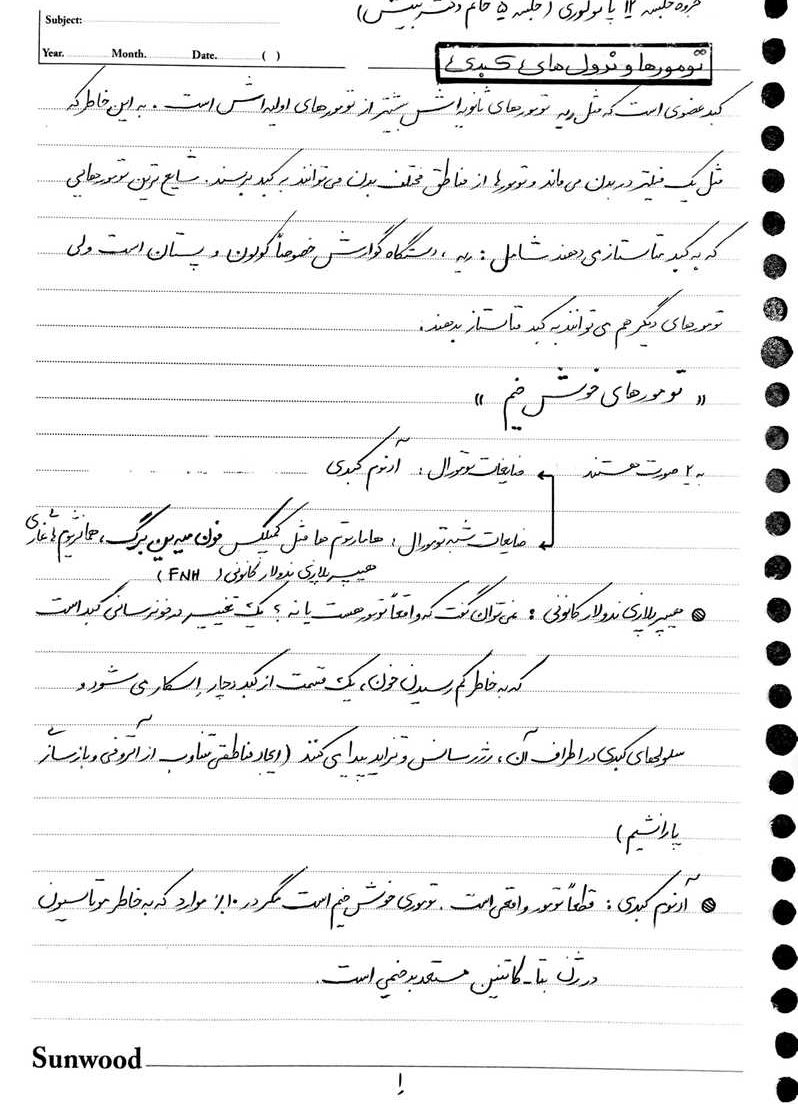 جزوه جلسه ۱۲ پاتولوژی (جلسه ۵ خانم دکتر بینش)
Subject:
Year. Month. Date. ( )
تومورها و ندول های کبدی
کبد عضوی است که مثل ریه تومورهای ثانویه اش بیشتر از تومورهای اولیه اش است. به این خاطر که
مثل یک فیلتر در بدن می ماند و تومورها از مناطق مختلف بدن می توانند به کبد برسند. شایع ترین تومورهایی
که به کبد متاستاز می دهند شامل: ریه، دستگاه گوارش خصوصاً کولون و پستان است ولی
تومورهای دیگر هم می توانند به کبد متاستاز بدهند.
« تومورهای خوش خیم »
به ۲ صورت هستند ضایعات تومورال: آدنوم کبدی
ضایعات شبه تومورال: هامارتوم ها مثل کمپلکس فون مین برگ، همانژیوم های غاری
هیپرپلازی ندولار کانونی (FNH)
هیپرپلازی ندولار کانونی: نمی توان گفت که واقعاً تومور هست یا نه؟ یک تغییر در خونرسانی کبد است
که به خاطر کم رسیدن خون، یک قسمت از کبد دچار اسکار می شود و
سلولهای کبدی در اطراف آن، رژنرسانس و تزاید پیدا می کنند (ایجاد مناطقی متناوب از آتروفی و بازسازی
پارانشیم)
آدنوم کبدی: قطعاً تومور واقعی است. توموری خوش خیم است مگر در ۱۰٪ موارد که به خاطر موتاسیون
در ژن بتا-کاتنین مستعد بدخیمی است.
Sunwood
۱